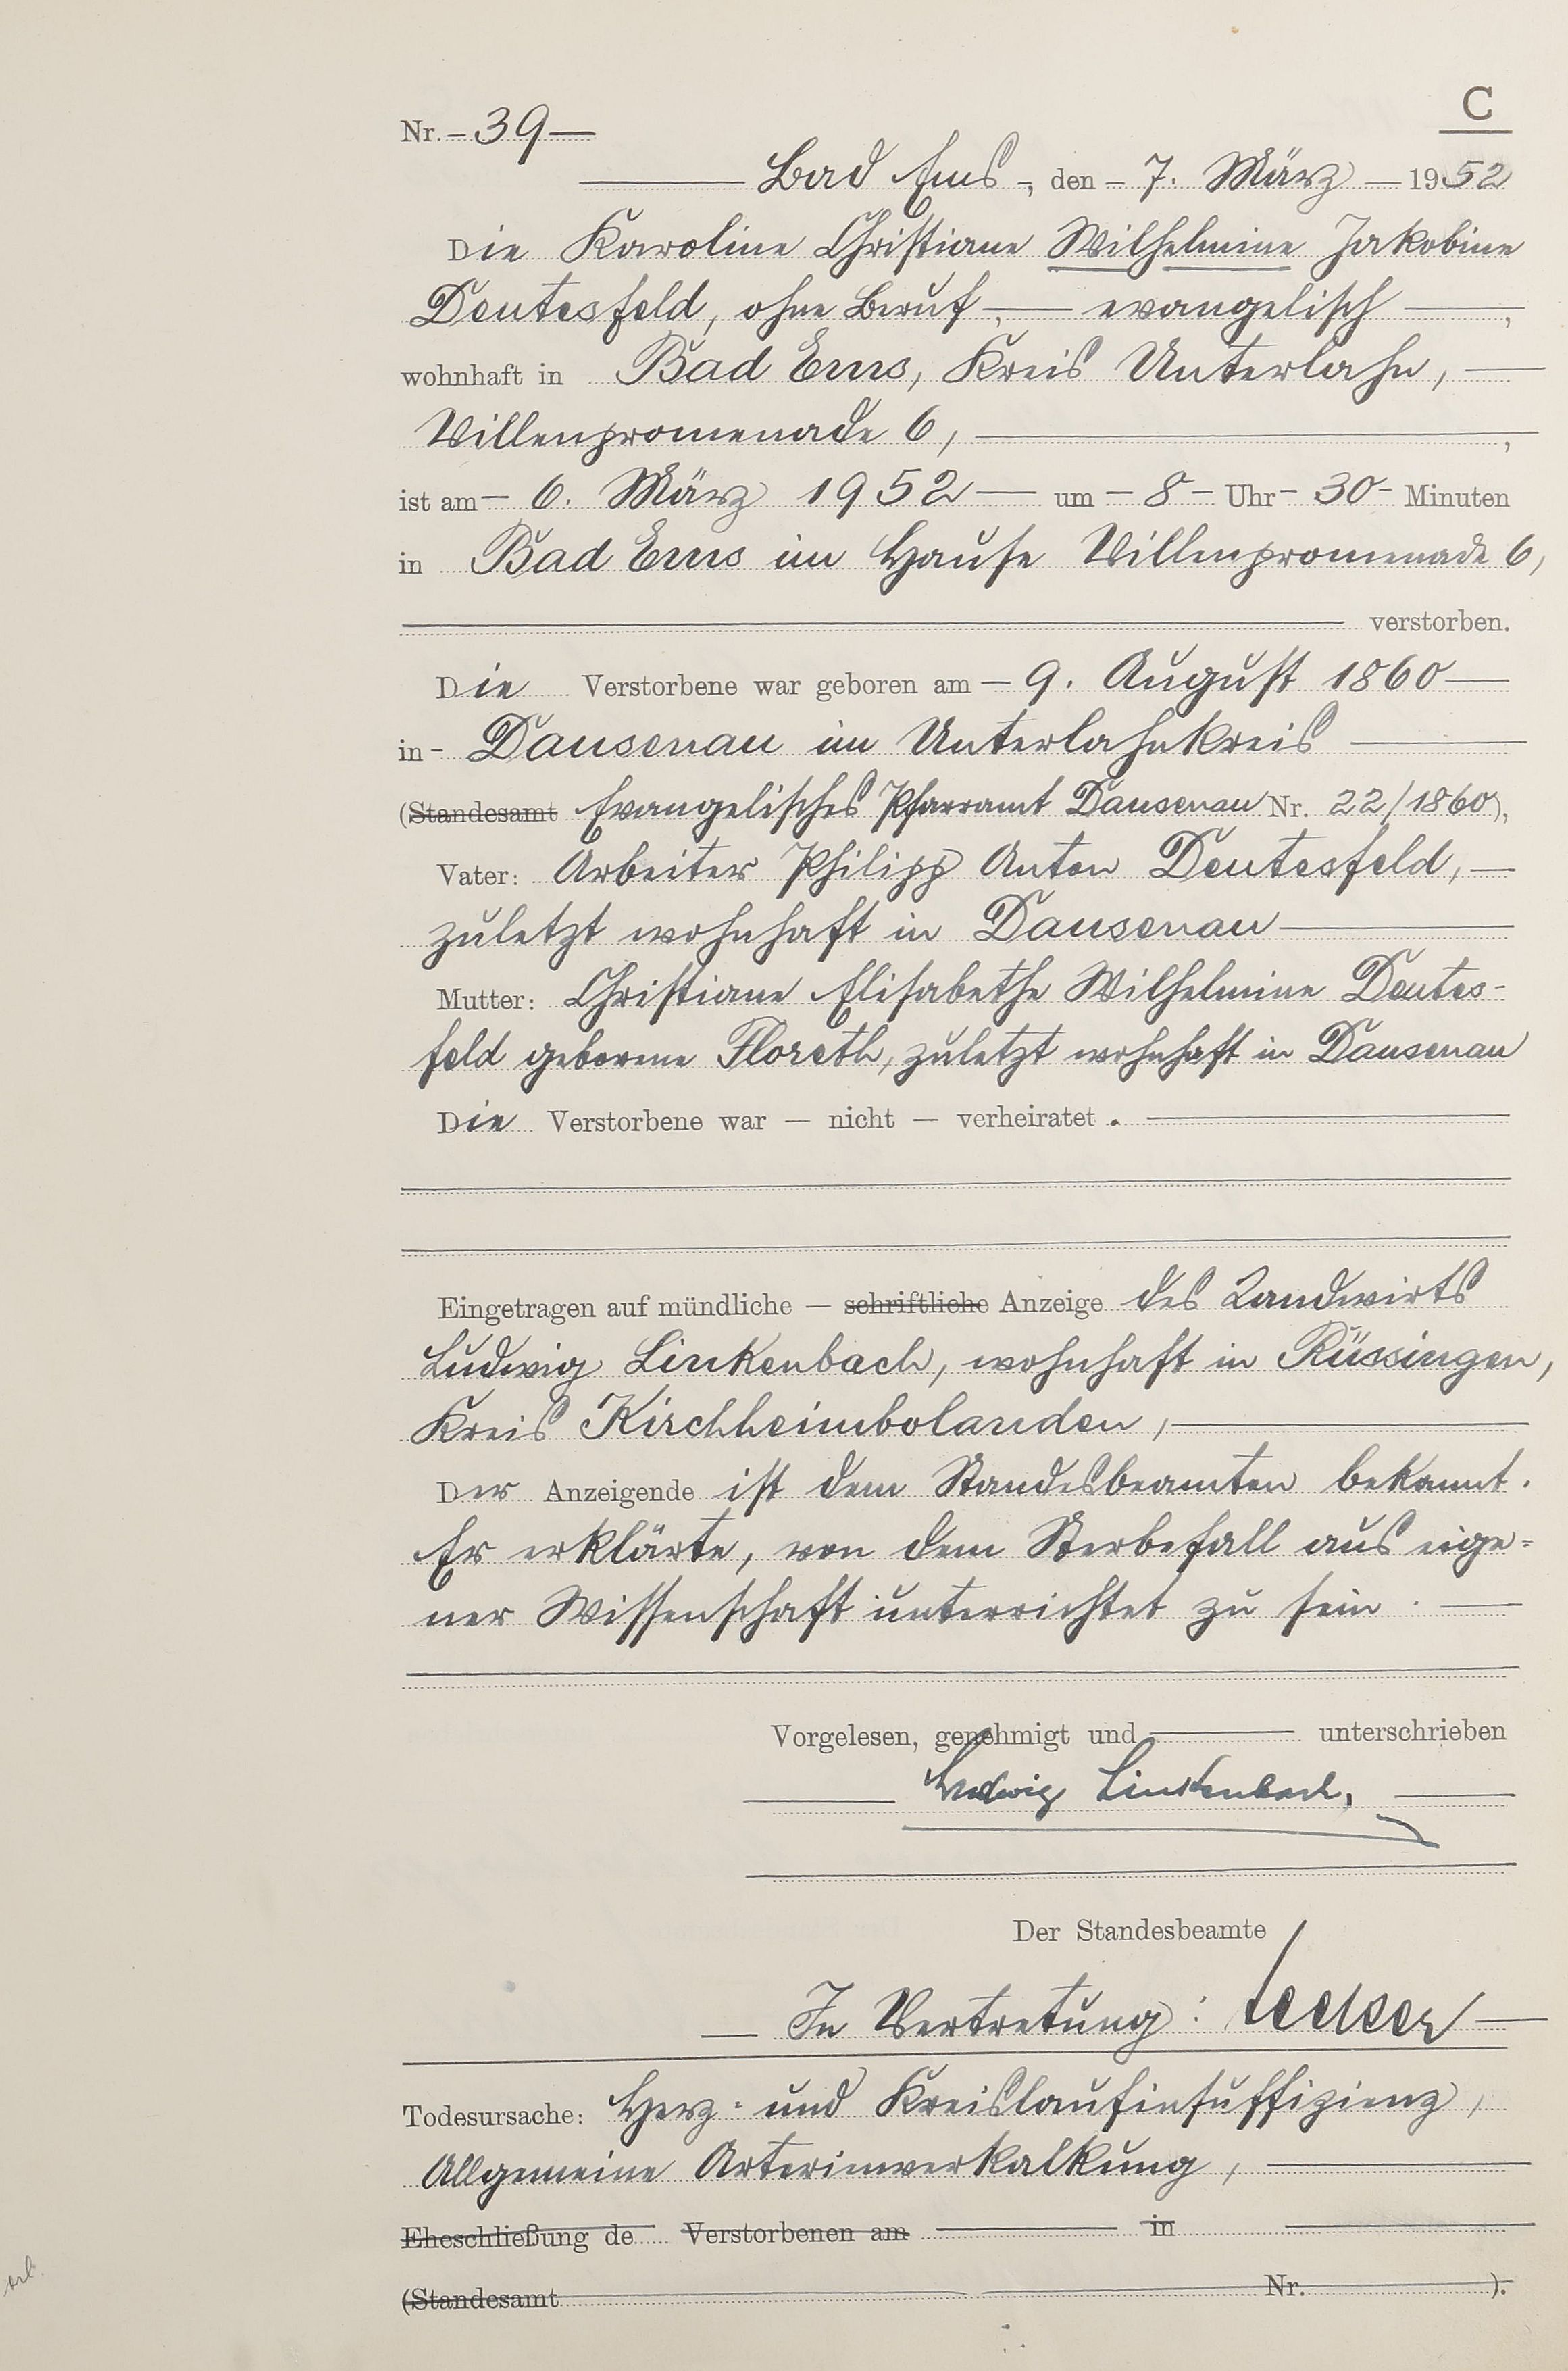 C
Nr. – 39 —
Bad Ems –, den – 7. März – 1952
Die Karoline Christiane Wilhelmine Jakobine
Deutesfeld, ohne Beruf –, — evangelisch —,
wohnhaft in Bad Ems, Kreis Unterlahn, —
Villenpromenade 6, —,
ist am – 6. März 1952 — um – 8 – Uhr – 30 – Minuten
in Bad Ems im Hause Villenpromenade 6,
— verstorben.
Die Verstorbene war geboren am – 9. August 1860 —
in – Dausenau im Unterlahnkreis —
(Standesamt Evangelisches Pfarramt Dausenau Nr. 22/1860),
Vater: Arbeiter Philipp Anton Deutesfeld, —
zuletzt wohnhaft in Dausenau —
Mutter: Christiane Elisabethe Wilhelmine Deutes-
feld geborene Floreth, zuletzt wohnhaft in Dausenau
Die Verstorbene war — nicht — verheiratet. —
Eingetragen auf mündliche — schriftliche Anzeige des Landwirts
Ludwig Linkenbach, wohnhaft in Rüssingen,
Kreis Kirchheimbolanden, —
Der Anzeigende ist dem Standesbeamten bekannt.
Er erklärte, von dem Sterbefall aus eige=
ner Wissenschaft unterrichtet zu sein. —
Vorgelesen, genehmigt und — unterschrieben
Ludwig Linkenbach,
Der Standesbeamte
— In Vertretung:
Todesursache: Herz= und Kreislaufinsuffizienz,
Allgemeine Arterienverkalkung, —
Eheschließung de Verstorbenen am — in —
(Standesamt — Nr. —).